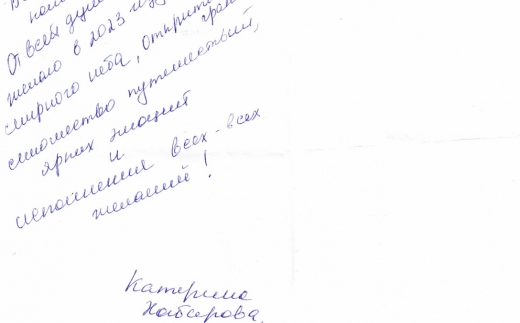 От всей души
желаю в 2023 году
мирного неба, открытых
множество путешествий,
ярких эмоций
и
исполнения всех-всех
желаний!
Катерина
Хабарова.